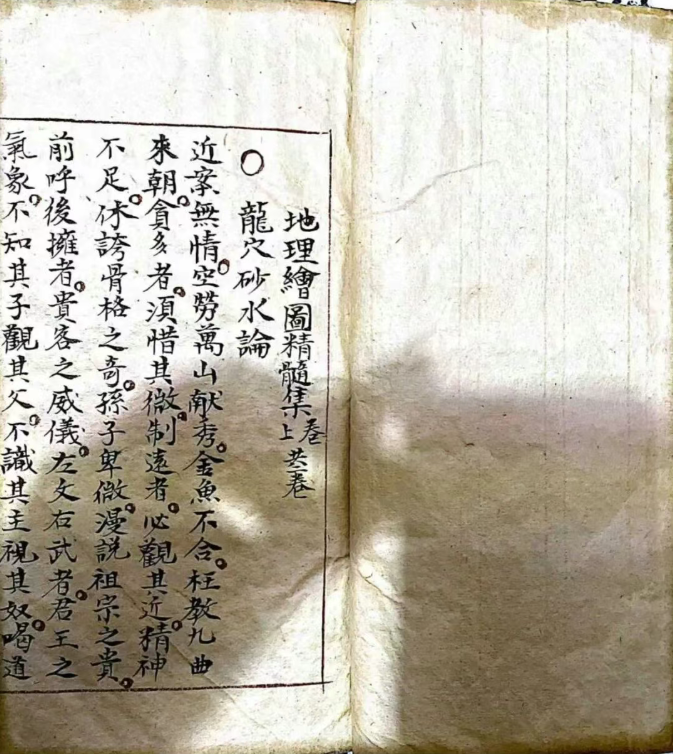 地理繪圖精髓集 卷上 共二卷
○ 龍穴砂水論
近案無情。空勞萬山献秀。金魚不合。枉教九曲
來朝。貪多者。須惜其微。制遠者。必觀其近。精神
不足。休誇骨格之奇。孫子卑微。漫説祖宗之貴。
前呼後擁者。貴客之威儀。左文右武者。君王之
氣象。不知其子觀其父。不識其主視其奴。喝道